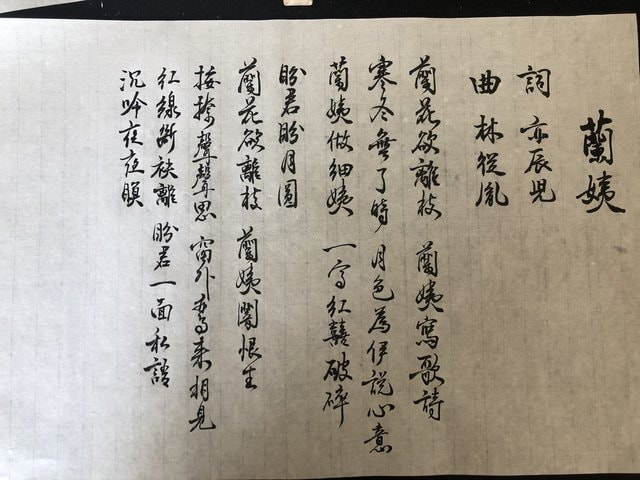 蘭姨
詞 亦辰兒
曲 林從胤
蘭花欲離枝 蘭姨寫歌詩
寒冬無了時 月色為伊說心意
蘭姨做細姨 一寫紅囍破碎
盼君盼月圓
蘭花欲離枝 蘭姨閣恨生
接捺聲聲思 窗外喬來相見
紅線斷袂離 盼君一面私語
沉吟夜夜瞑